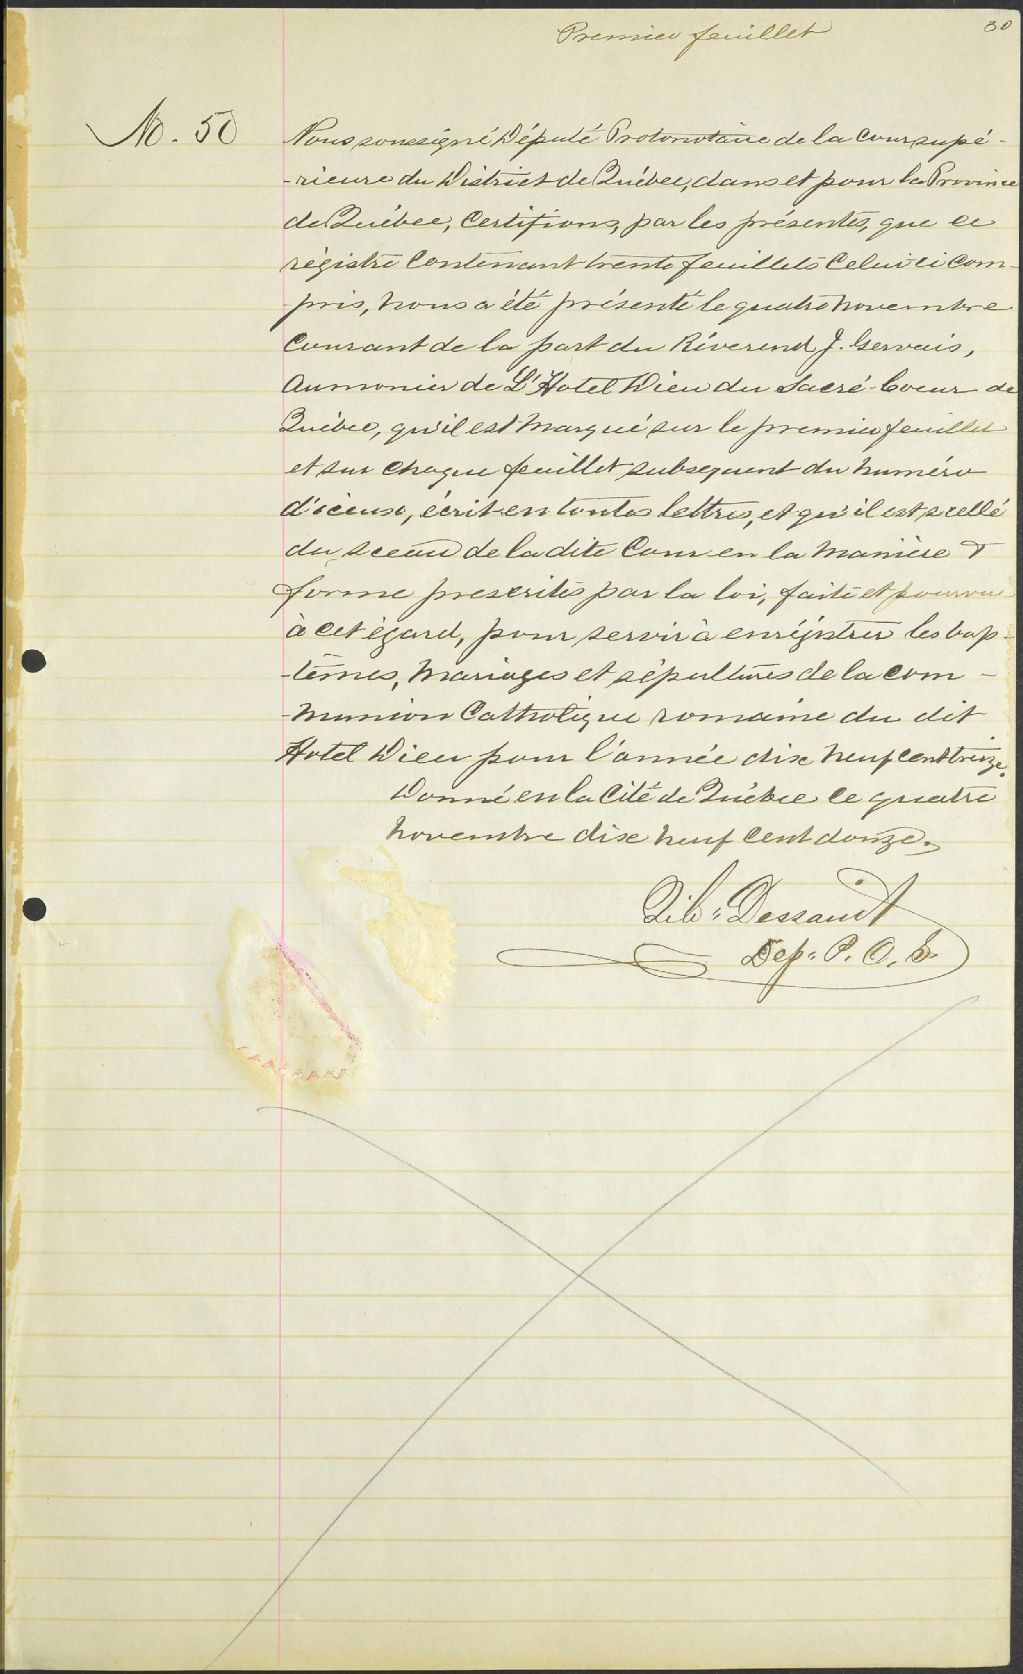 Premier feuillet
30
No. 50
Nous soussigné Député Protonotaire de la Cour supé-
-rieure du District de Québec, dans et pour la Province
de Québec, Certifions, par les présentes, que ce
régistre Contenant trente feuillets Celui ci Com-
-pris, nous a été présenté le quatre novembre
Courant de la part du Réverend J. Gervais,
Aumonier de L'Hotel Dieu du Sacré-Coeur de
Québec, qu'il est marqué sur le premier feuillet
et sur chaque feuillet subsequent du numéro
d'iceux, écrit en toutes lettres, et qu'il est scellé
du sceau de la dite Cour en la manière &
forme prescrites par la loi, faite et pourvue
à cet égard, pour servir à enrégistrer les bap-
-têmes, mariages et sépultures de la Com-
-munion Catholique romaine du dit
Hotel Dieu pour l'année dix neuf cent treize.
Donné en la Cité de Québec ce quatre
novembre dix neuf Cent douze.
Dessault
Dep. P. C. S.